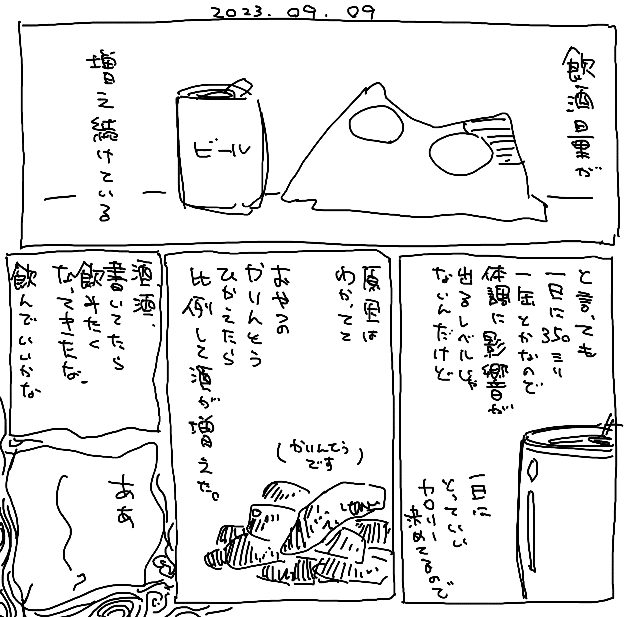 2023.09.09
飲酒量が
増え続けている
ビール
と言っても
一日に350ミリ
一缶とかなので
体調に影響が
出るレベルじゃ
ないんだけど
一日に
とっていい
カロリー
決めてるので
原因は
わかってて
おやつの
かりんとう
ひかえたら
比例して酒が増えた。
(かりんとう
です)
酒、酒、
書いてたら
飲みたく
なってきたな。
飲んでいいかな
ああ